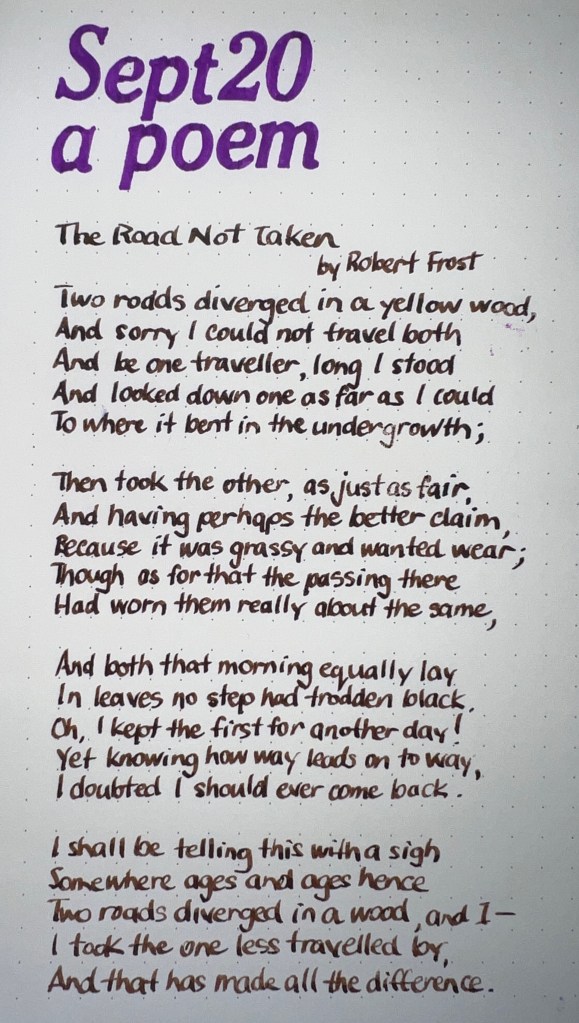 Sept 20
a poem
The Road Not Taken
by Robert Frost
Two roads diverged in a yellow wood,
And sorry I could not travel both
And be one traveller, long I stood
And looked down one as far as I could
To where it bent in the undergrowth;
Then took the other, as just as fair,
And having perhaps the better claim,
Because it was grassy and wanted wear;
Though as for that the passing there
Had worn them really about the same,
And both that morning equally lay
In leaves no step had trodden black.
Oh, I kept the first for another day!
Yet knowing how way leads on to way,
I doubted I should ever come back.
I shall be telling this with a sigh
Somewhere ages and ages hence
Two roads diverged in a wood, and I—
I took the one less travelled by,
And that has made all the difference.